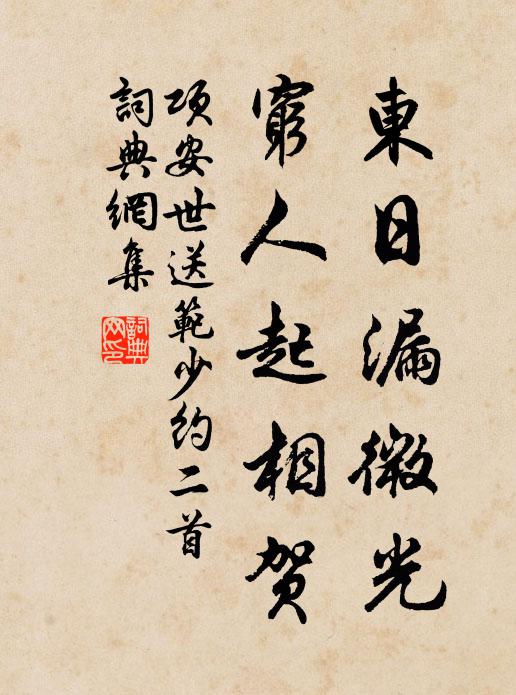 東日漏微光
窮人起相賀
項安世送範少約二首
詞典網集
詞典網印